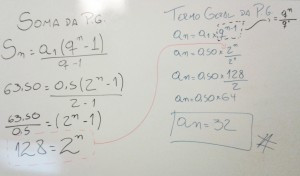 SOMA DA P.G.
Sn = a1(q^n - 1)
q - 1
63.50 = 0.5(2^n - 1)
2 - 1
63.50 = (2^n - 1)
0.5
128 = 2^n
TERMO GERAL DA P.G.
an = a1 x q^n-1 = q^n
q^1
an = 0,50 x 2^n
2^1
an = 0,50 x 128
2
an = 0,50 x 64
an = 32